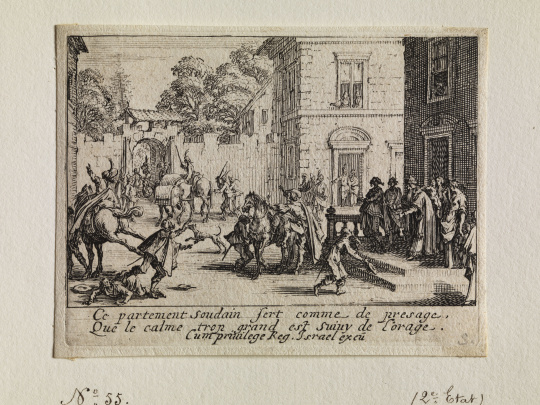 Ce partement Soudain sert comme de presage,
Que le calme trop grand est suiuy de l'orage.
Cum priuilege Reg. Israel excu
N° 55.
(2e Etat)